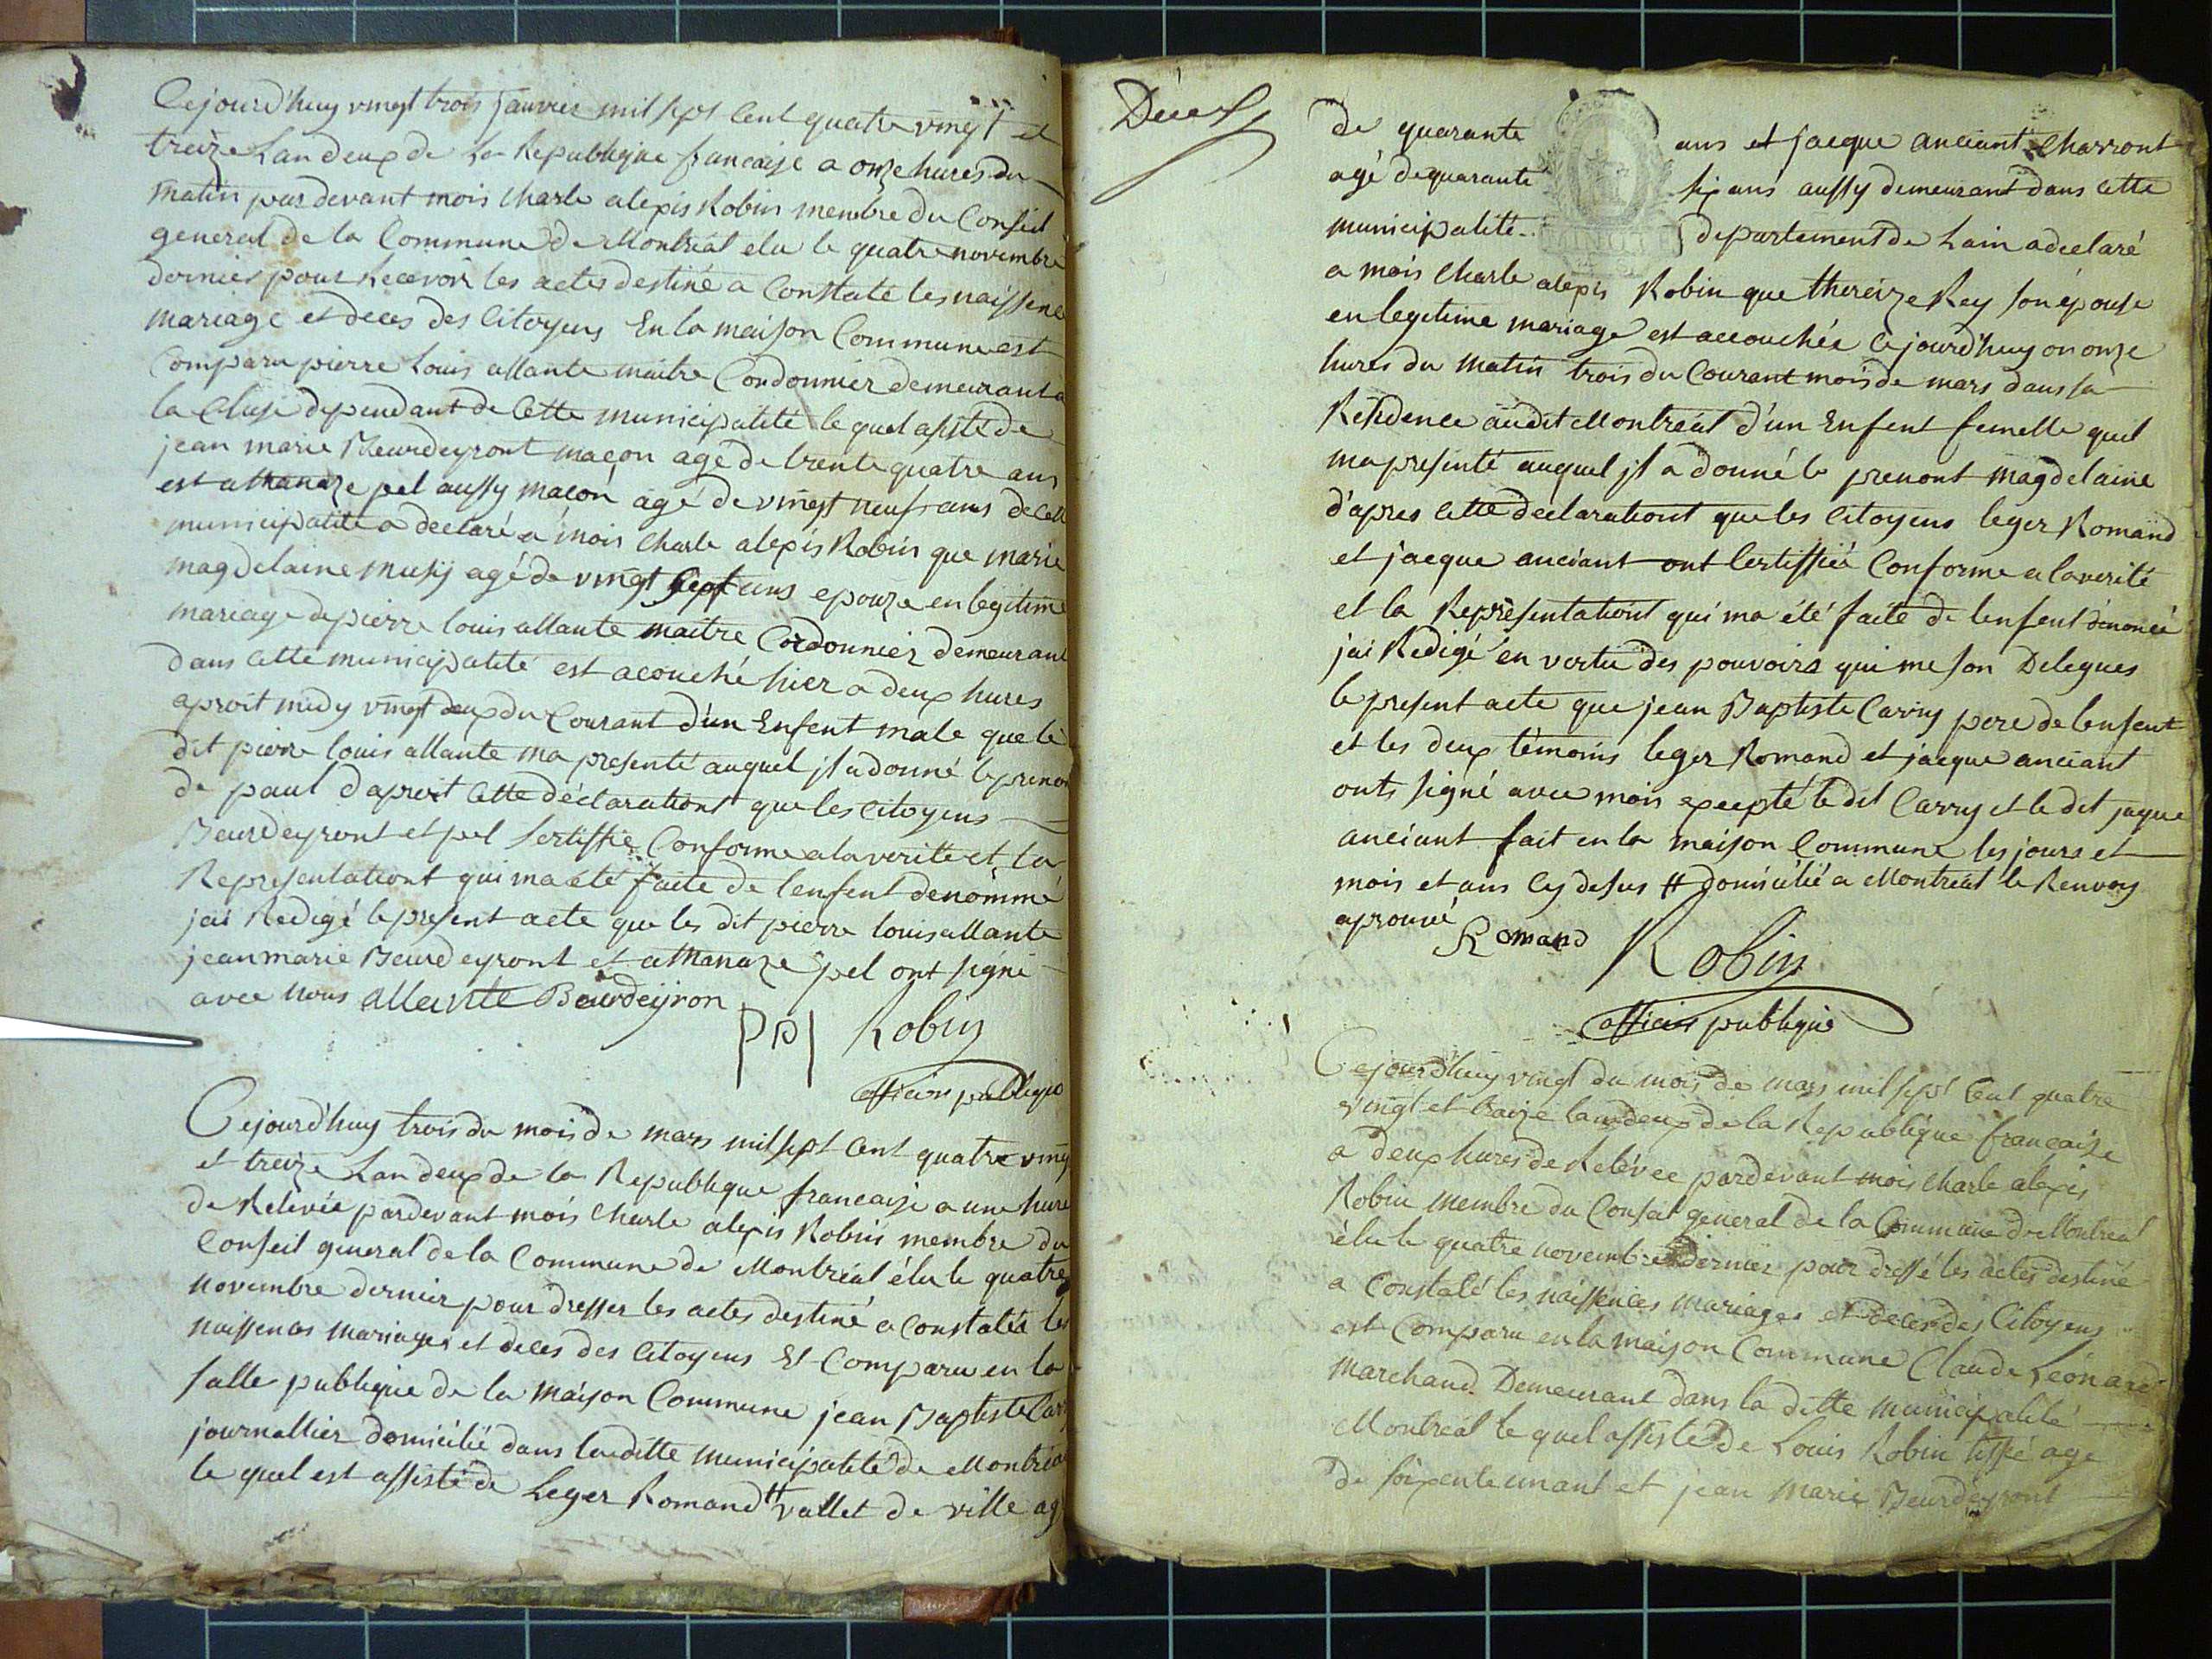 Cejourd'huy vingt trois janvier mil sept cent quatre vingt et
treize Lan deux de La Republique francaise a onze hures du
matin pardevant mois Charle alexis Robin membre du Conseil
general de la Commune de Montréal elu le quatre novembre
dernier pour Recevoir les actes destiné a Constaté les naissence
mariage et deces des Citoyens En la maison Commune est
Comparu pierre Louis allante maitre Cordonnier demeurant a
la Cluse dependant de Cette municipalité le quel assisté de
jean marie Beurdeyront maçon agé de trente quatre ans
est athanaze pel aussy maçon agé de vingt neuf ans de Cette
municipalité a declaré a mois Charle alexis Robin que marie
magdelaine musy agé de vingt sept ans epouze en legitime
mariage de pierre louis allante maitre Cordonnier demeurant
dans Cette municipalité est acouché hier a deux hures
aproit midy vingt deux du Courant d'un Enfent male que le
dit pierre louis allante ma presenté auquel jl a donné le prenon
de paul daproit Cette déclarationt que les Citoyens
Beurdeyront et pel Sertiffié Conforme ala verité et la
Representationt qui ma été faite de lenfent denommé
jai Redigé le present acte que les dit pierre louis allante
jean marie Beurdeyront et athanaze pel ont signé
avec nous allante Beurdeyron
ppl Robin
officier publique
Cejourd'huy trois du mois de mars mil sept Cent quatre ving
et treize Lan deux de la Republique francaise a une hure
de Relevée pardevant mois Charle alexis Robin membre du
Conseil general de la Commune de Montréal élu le quatre
novembre dernier pour dresser les actes destiné a Constatés les
naissences mariages et deces des Citoyens Et Comparu en la
salle publique de la maison Commune jean Baptiste Carr
journallier domicilié dans laditte municipalité de Montréal
le quel est assisté de Leger Romand # vallet de ville ag
Décès
de quarante ans et jacque anciant Charront
agé de quarante six ans aussy demeurant dans Cette
municipalité departement de Lain a declaré
MINUTE
a mois Charle alexis Robin que thereize Rey son épouse
en legitime mariage est accouchée Cejourd'huy on onze
hures du matin trois du Courant mois de mars dans sa
Residence audit Montréal d'un Enfent femelle quil
ma presenté auquel jl a donné le prenont magdelaine
d'apres Cette declarationt que les Citoyens leger Romand
et jacque anciant ont Certiffié Conforme a la verité
et la Représentationt qui ma été faite de lenfent dénoncé
jai Redigé en vertu des pouvoirs qui me son Delegues
le present acte que jean Baptiste Carry pere de lenfent
et les deux témoins leger Romand et jacque anciant
onts signé avec mois excepté le dit Carry et le dit jaque
anciant fait en la maison Commune les jours et
mois et ans Cy desus # domicilié a Montréal le Renvoy
aprouvé
Romand Robin
officier publique
Cejourd'huy vingt du mois de mars mil sept Cent quatre
vingt et traize lan deux de la Republique francaise
a deux hures de Relévée pardevant mois Charle alexis
Robin membre du Conseil general de la Commune de Montréal
élu le quatre novembre dernier pour dressé les actes destiné
a Constaté les naissences mariages et deces des Citoyens
est Comparu en la maison Commune Claude Leonard
marchand Demeurant dans la ditte municipalité
Montréal le quel assisté de Louis Robin age
de soixente unant et jean Marie Beurdeyront